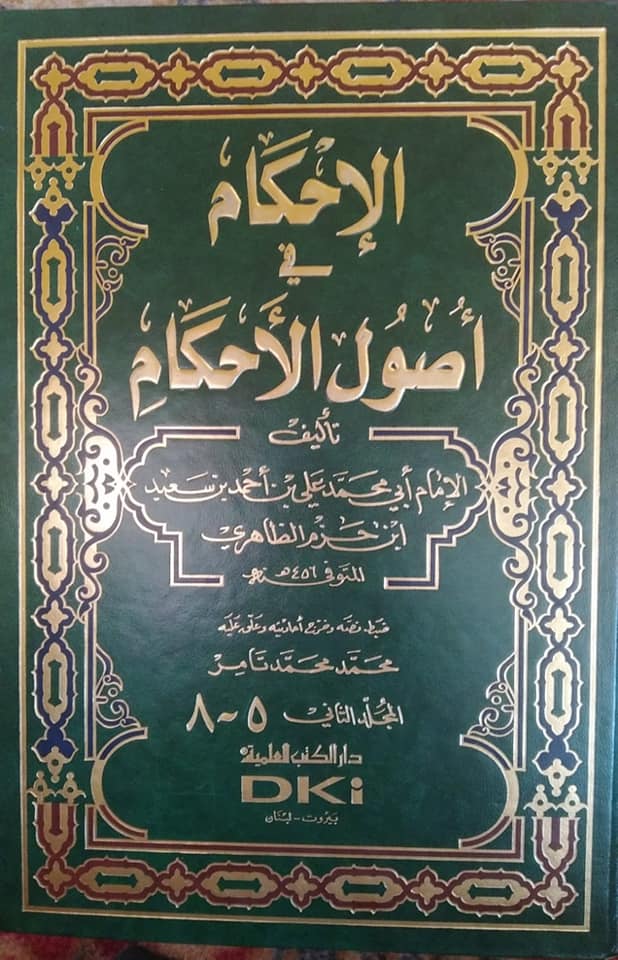 الإحكام
في
أصول الأحكام
تأليف
الإمام أبي محمد علي بن أحمد بن سعيد
ابن حزم الظاهري
المتوفى ٤٥٦ هـ
ضبط نصه وخرج أحاديثه وعلق عليه
محمد محمد تامر
المجلد الثاني ٥ - ٨
دار الكتب العلمية
DKi
بيروت - لبنان